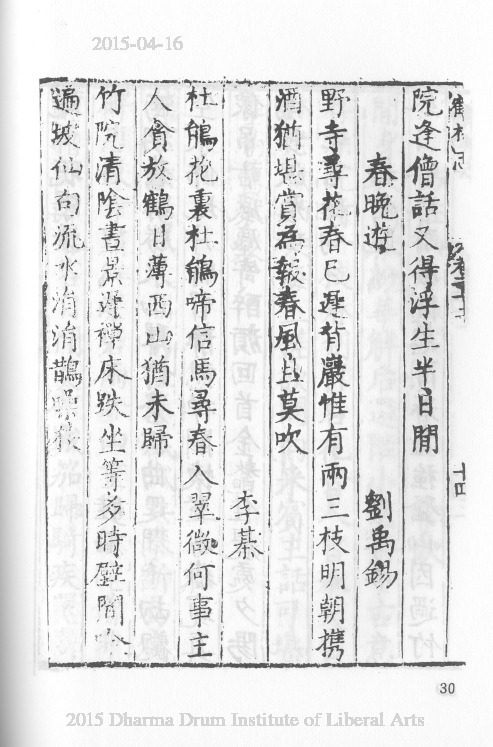 2015-04-16
十四
院逢僧話又得浮生半日閒
春晚遊 劉禹錫
野寺尋花春已遲背巖惟有兩三枝明朝攜
酒猶堪賞為報春風且莫吹
李綦
杜鵑花裏杜鵑啼信馬尋春入翠微何事主
人貪放鶴日薄西山猶未歸
竹院清陰晝景遲禪床趺坐等多時壁間吟
遍坡仙句流水涓涓鵲噪枝
30
2015 Dharma Drum Institute of Liberal Arts